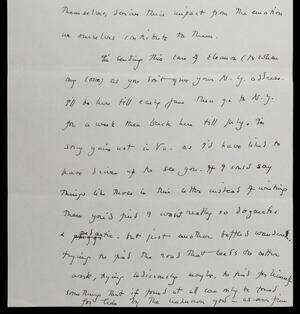 themselves, derive their impact from the emotion
we ourselves contribute to them.
I'm sending this care of Eleanor (to whom
my love) as you don't give your N.Y. address.
I'll be here till early June then go to N.Y.
for a week then back here till July. I'm
sorry you're not in Va. as I'd have liked to
have driven up to see you. If I could say
things like those in this letter instead of writing
them you'd find I wasn't really so dogmatic
& pedantic – but just another baffled wanderer,
trying to find the road that leads to better
work, trying tediously maybe, to find for himself
something that if found at all can only be found
for him by the unknown you – as